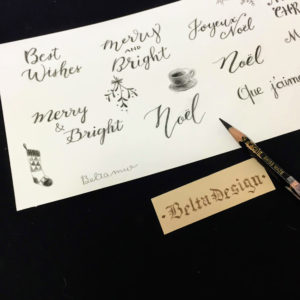 Best
Wishes
Merry
AND
Bright
Joyeux
Noël
Merry
& Bright
Noël
Noël
Que j'aime
Beltamur
·Belta Design·